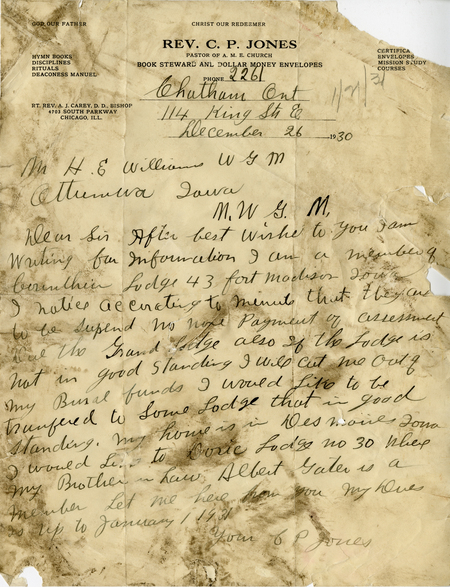 GOD OUR FATHER
CHRIST OUR REDEEMER
REV. C. P. JONES
PASTOR OF A. M. E. CHURCH
BOOK STEWARD AND DOLLAR MONEY ENVELOPES
HYMN BOOKS
DISCIPLINES
RITUALS
DEACONESS MANUEL
CERTIFICA
ENVELOPES
MISSION STUDY
COURSES
PHONE 2261
Chatham Ont
114 King St E
December 26 1930
RT. REV. A. J. CAREY, D. D., BISHOP
4703 SOUTH PARKWAY
CHICAGO, ILL.
Mr H. E Williams W G M
Ottumwa Iowa
M. W G. M.
Dear Sir After best Wishe to you I am
Writing for Information I am a member of
Corinthian Lodge 43 fort Madison Iowa
I notice accorating to Minute that they are
to be Supend no none Payment of assessment
the Grand Lodge also If the Lodge is
not in good Standing I will cut me out of
My Burel funds I would Like to be
tranfered to Some Lodge that in good
Standing. My home is in Des moines Iowa
I would to Doric Lodge no 30 Where
my Brother in Law Albert Gater is a
member Let me here from you My Dues
is up to January 1 1931
Your C P Jones